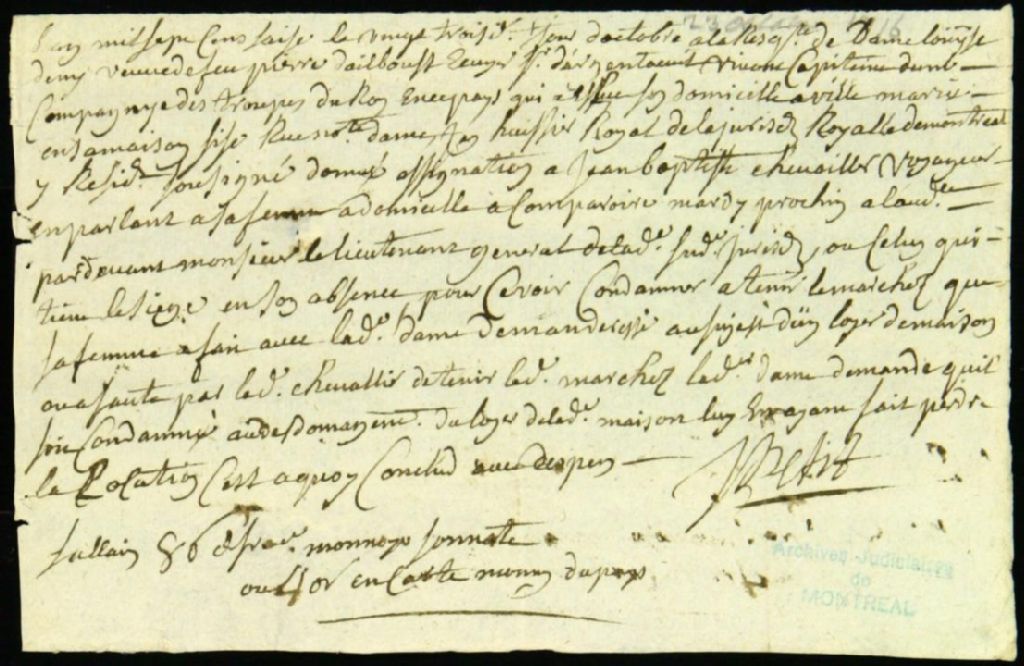 L'an mil sept Cens saise le vingt troise. jour d'octobre a la Resqte. de Dame louyse
deny veuve de feu pierre dailboust Ecuyer Sr. d'argentoeuil vivant Capitaine dune
Compagnye des troupes du Roy En ce pays qui a esleu son domicille a ville marie
en sa maison sise Rue note. dame, Jay huissier Royal de la Jurisd Royalle de montreal
y Resid. sousigné donné assignation a Jean baptiste chevallier voyageur
en parlant a sa femme a domicille a Comparoire mardy prochin a l'aud.ce
pardevant monsieur le lieutenant general de lade. sud. Jurisd, ou Celuy qui
tiene le siege en son absence pour Ce voir Condamner a tenir le marché que
sa femme a fait avec lade. dame demanderesse au sujest d'un loyer de maison
ou a faute par led. chevallir de tenir led. marchez lade. dame demande quil
soit Condamné au desdomagemt. du loyer de lade. maison luy En ayant fait perdre
la location C'est a quoy Conclud avec despens
JPetit
sallair monnoye sonnante
ou en Carte monnoy du pays
Archives Judiciaires
de
MONTREAL